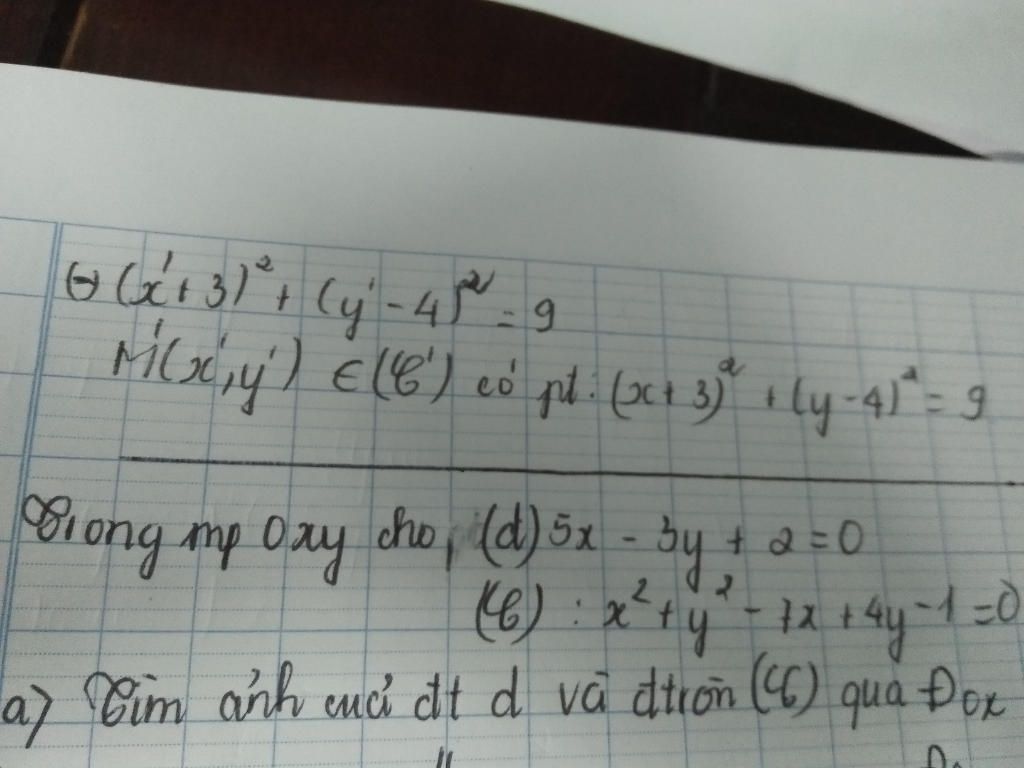 ⇔ (x'+3)² + (y'-4)² = 9
M'(x',y') ∈ (C') có pt: (x+3)² + (y-4)² = 9
Trong mp Oxy cho, (d) 5x - 3y + 2 = 0
(C) : x² + y² - 7x + 4y - 1 = 0
a) Tìm ảnh của đt d và đtròn (C) qua Đox